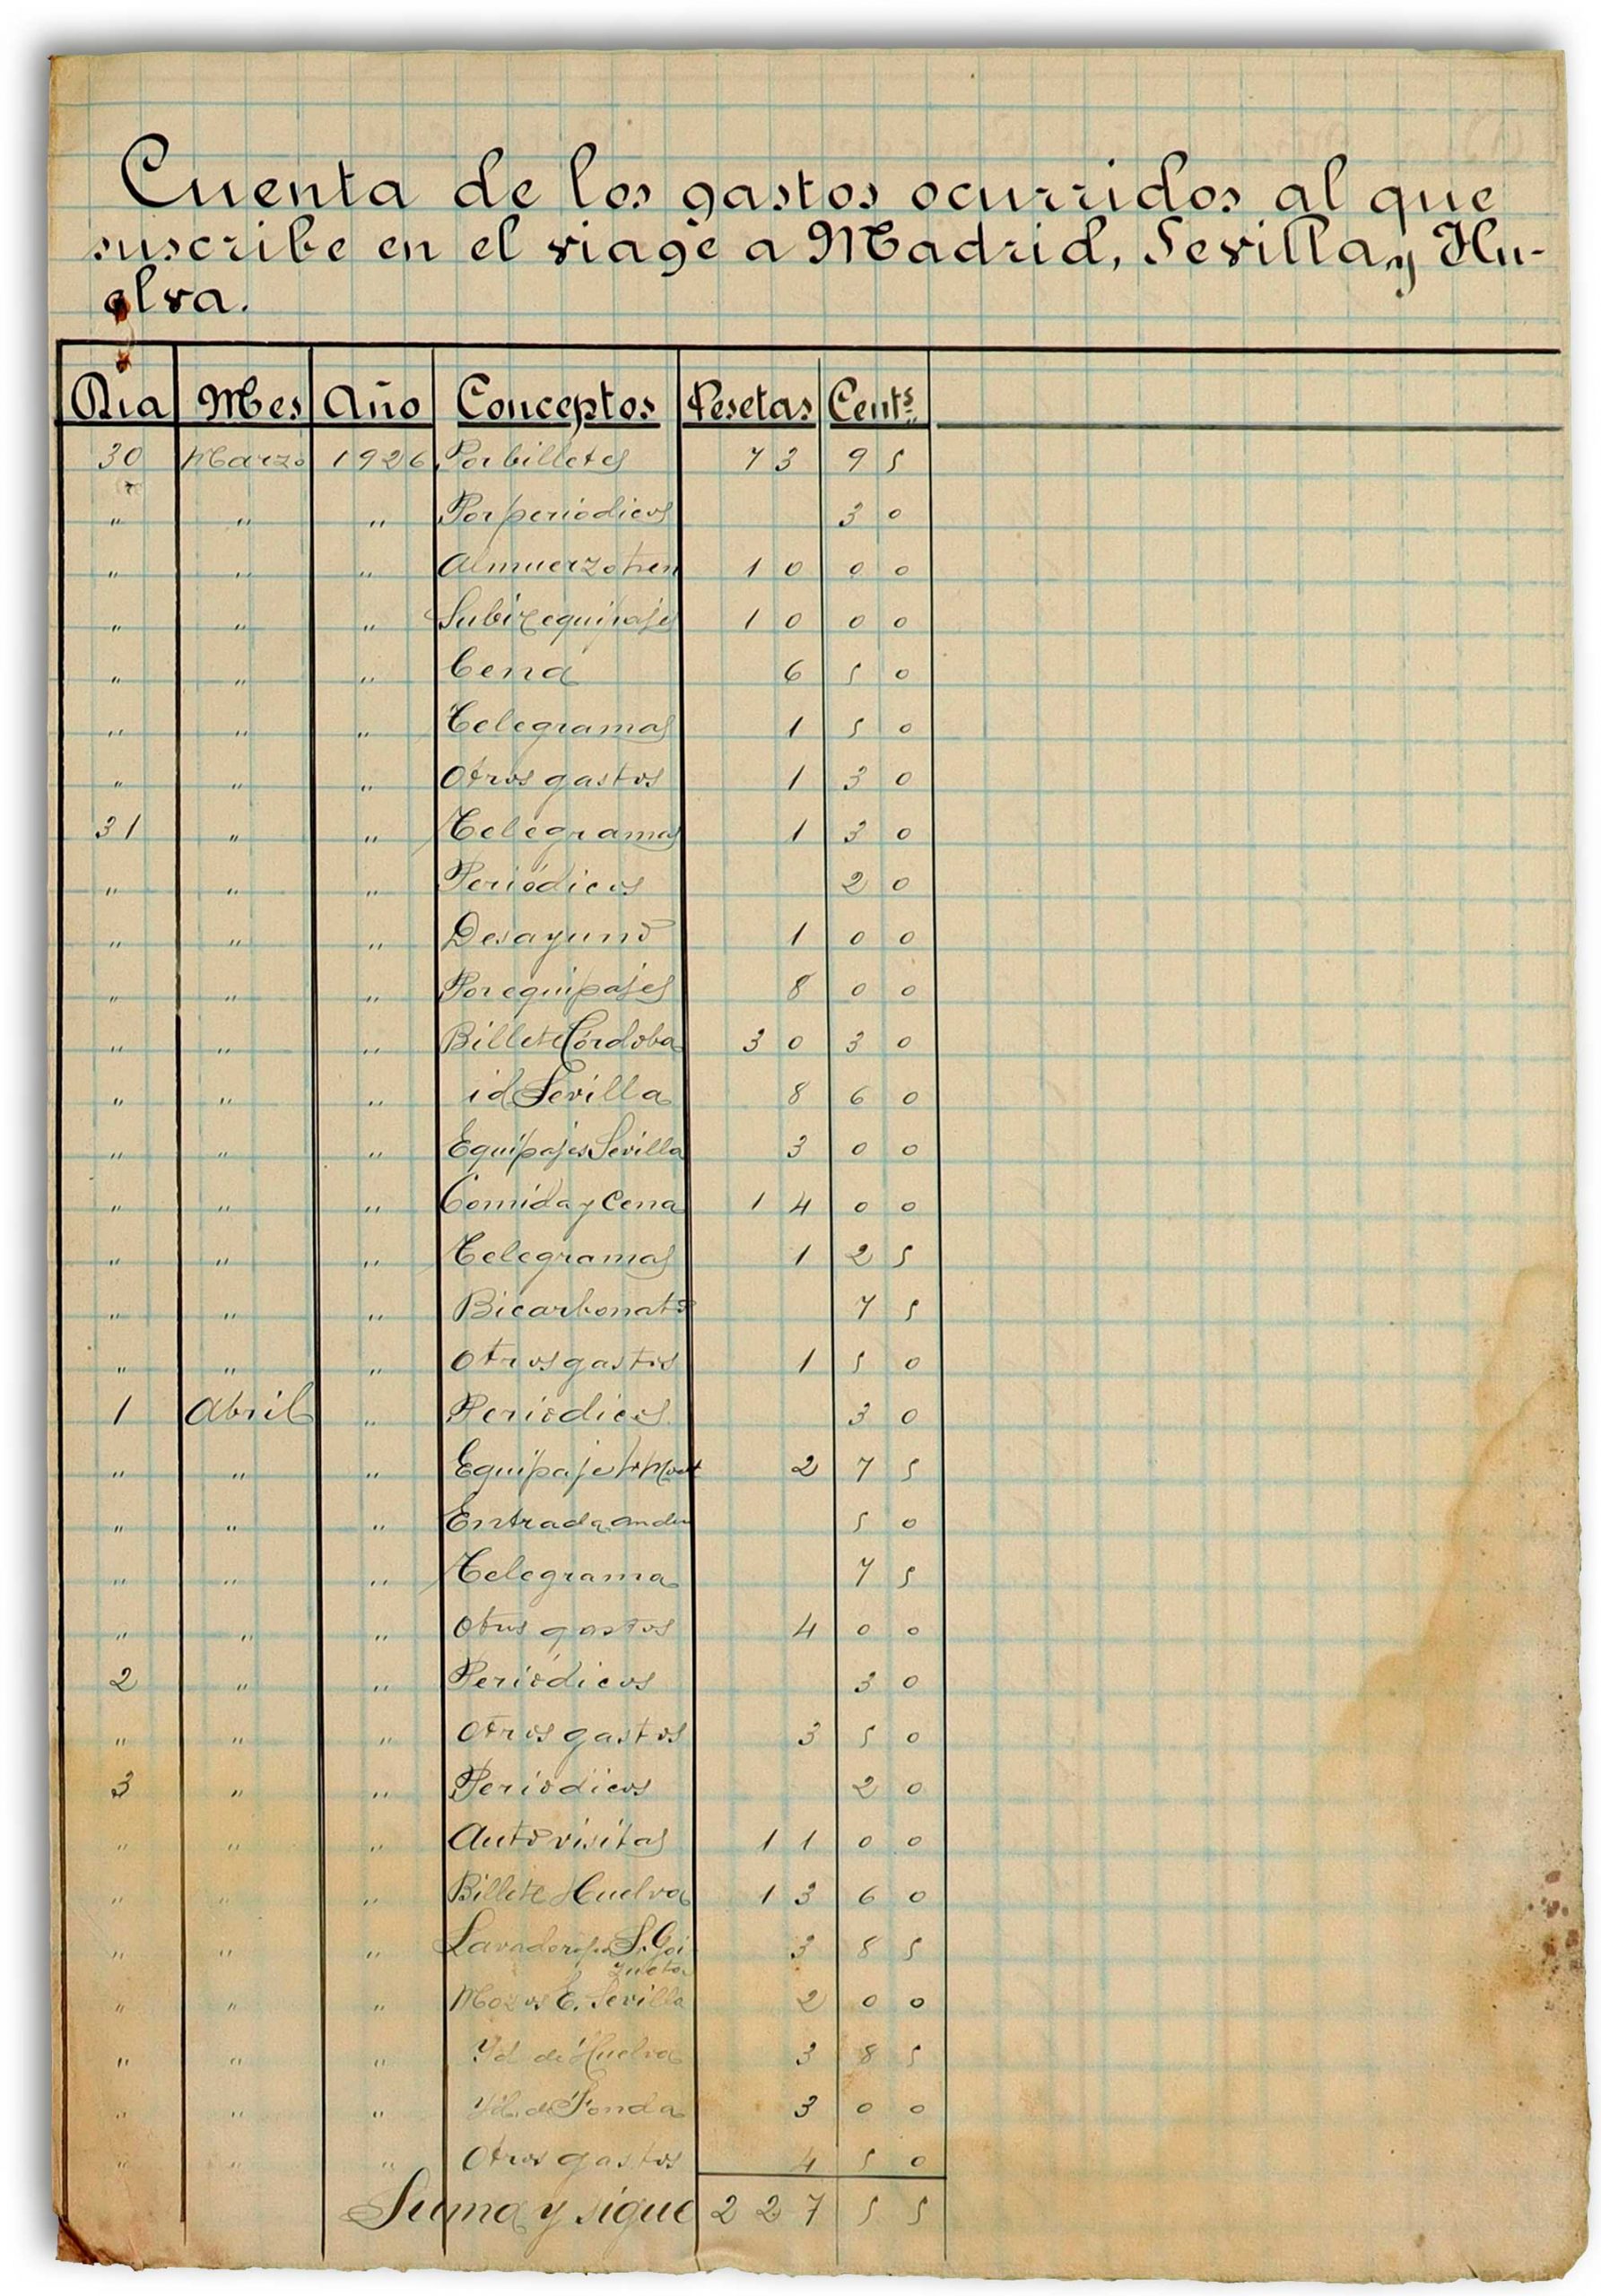 Cuenta de los gastos ocurridos al que
suscribe en el viage a Madrid, Sevilla y Hu-
elva.
Dia Mes Año Conceptos Pesetas Cents.
30 Marzo 1926 Por billetes 73 95
" " " Por periódicos 30
" " " Almuerzo tren 10 00
" " " Subir equipaje 10 00
" " " Cena 6 50
" " " Telegramas 1 50
" " " Otros gastos 1 30
31 " " Telegramas 1 30
" " " Periódicos 20
" " " Desayuno 1 00
" " " Por equipajes 8 00
" " " Billete Córdoba 30 30
" " " id Sevilla 8 60
" " " Equipajes Sevilla 3 00
" " " Comida y Cena 14 00
" " " Telegramas 1 25
" " " Bicarbonato 75
" " " Otros gastos 1 50
1 Abril " Periódicos 30
" " " Equipaje 2 75
" " " Entrada anden 50
" " " Telegrama 75
" " " Otros gastos 4 00
2 " " Periódicos 30
" " " Otros gastos 3 50
3 " " Periódicos 20
" " " Auto visitas 11 00
" " " Billete Huelva 13 60
" " " Lavado ropa S. Goi 3 85
zueta
" " " Mozos E. Sevilla 2 00
" " " Yd de Huelva 3 85
" " " Yd. de Fonda 3 00
" " " Otros gastos 4 50
Suma y sigue 227 55